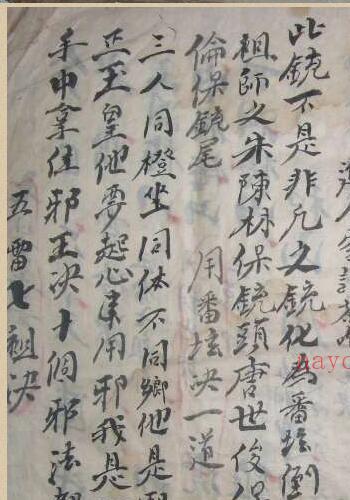 此銃不是非凡之銃化為番坛倒
祖師之朱陳林保銃頭唐世俊保
倫保銃尾 用番坛决一道
三人同橙坐同体不同鄉他是
正玉皇他要起心来用邪我是
手中拿住邪王决十個邪法
五雷七祖决